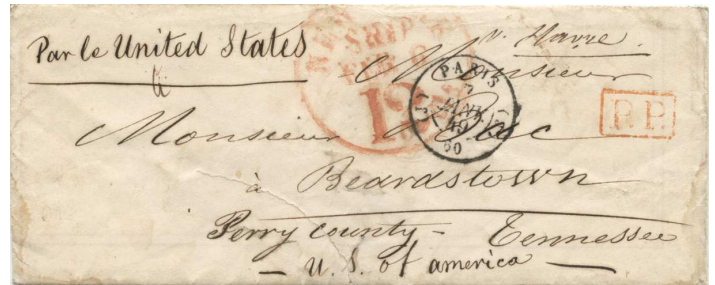 Par le United States
v. Havre
Monsieur
NEW
SHIP
FEB 6
12
PARIS
7
JANV.
49
(60)
P.P.
Monsieur
à Beardstown
Perry County - Tennessee
- U. S. of america -